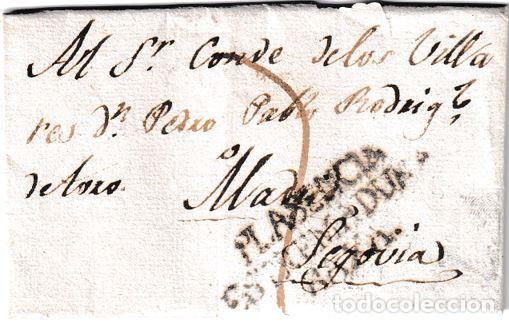 Al Sr. Conde de los Villa
res Dn. Pedro Pablo Rodrigz.
de toro.
Madrid
PLASENCIA
Segovia
todocoleccion.net